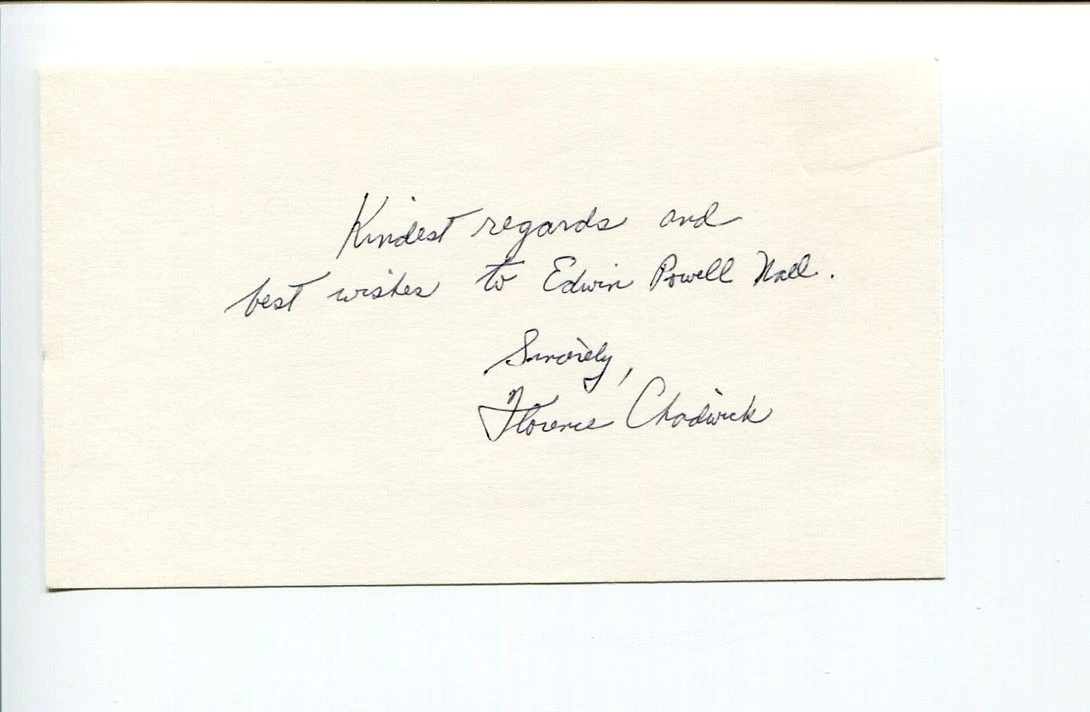 Kindest regards and
best wishes to Edwin Powell Nall.
Sincerely,
Florence Chadwick